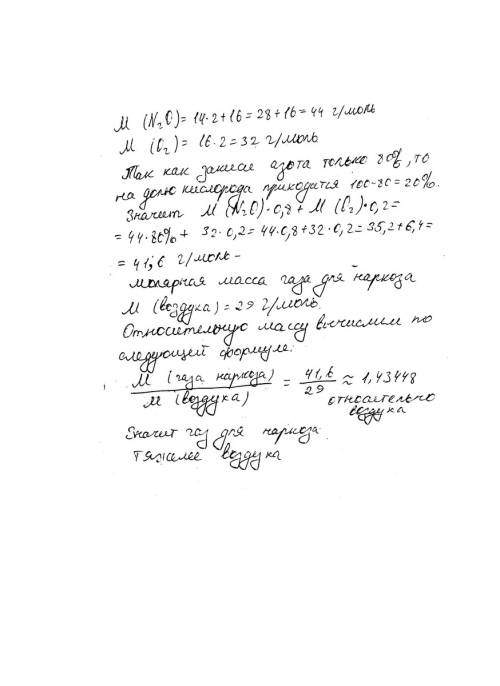 M (N₂O) = 14·2+16=28+16=44 г/моль
M (O₂) = 16·2=32 г/моль
Так как закиси азота только 80%, то
на долю кислорода приходится 100-80=20%.
Значит M (N₂O)·0,8 + M (O₂)·0,2=
= 44·80% + 32·0,2= 44·0,8+32·0,2=35,2+6,4=
= 41,6 г/моль -
молярная масса газа для наркоза
M (воздуха) = 29 г/моль.
Относительную массу вычислим по
следующей формуле:
M (газа наркоза) / M (воздуха) = 41,6 / 29 ≈ 1,43448
относительно
воздуха
Значит газ для наркоза
тяжелее воздуха